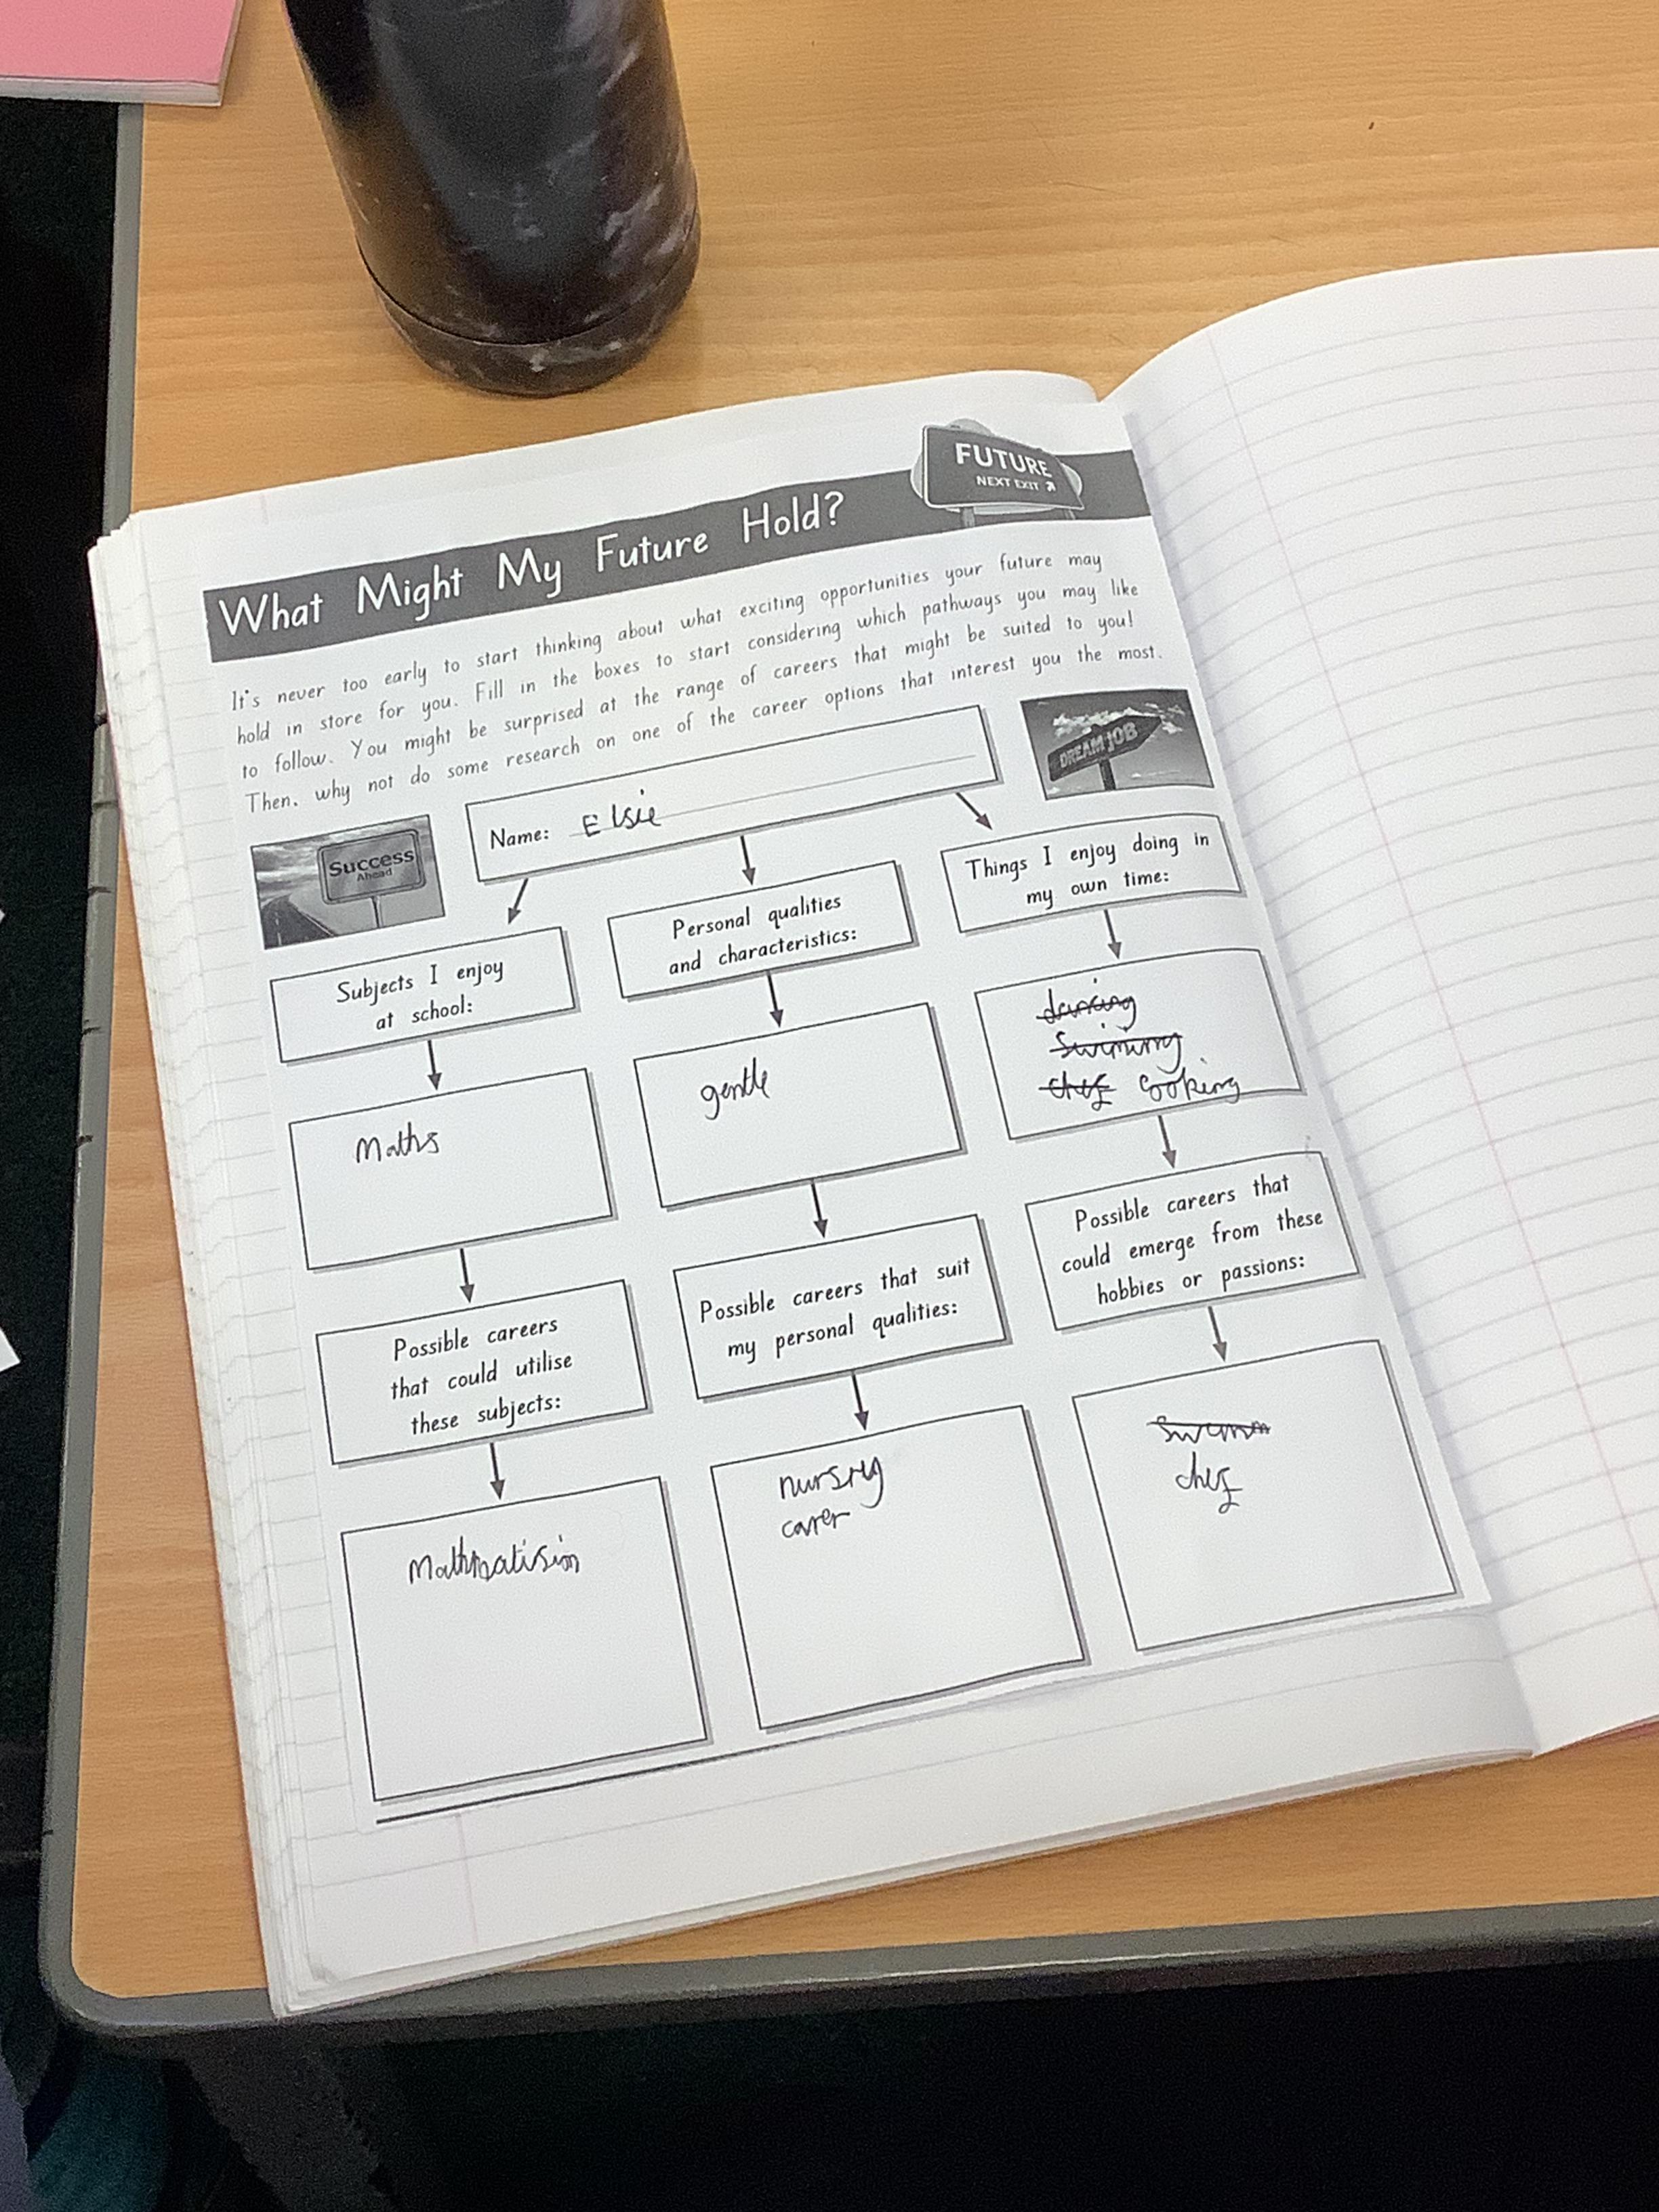 FUTURE
NEXT EXIT
What Might My Future Hold?
It's never too early to start thinking about what exciting opportunities your future may
hold in store for you. Fill in the boxes to start considering which pathways you may like
to follow. You might be surprised at the range of careers that might be suited to you!
Then, why not do some research on one of the career options that interest you the most.
DREAM JOB
Success
Ahead
Name: Elsie
Subjects I enjoy
at school:
Maths
Possible careers
that could utilise
these subjects:
Mathmatisin
Personal qualities
and characteristics:
gentle
Possible careers that suit
my personal qualities:
carer
Things I enjoy doing in
my own time:
dancing
Swimming
chef cooking
Possible careers that
could emerge from these
hobbies or passions:
chef